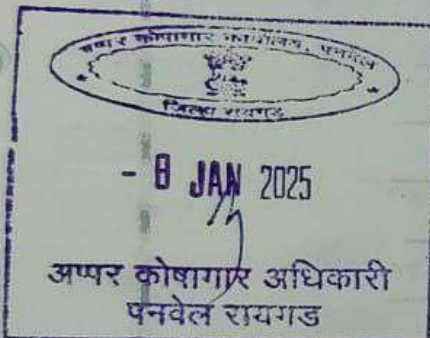 अप्पर कोषागार कार्यालय, पनवेल
जिल्हा रायगड
- 8 JAN 2025
अप्पर कोषागार अधिकारी
पनवेल रायगड